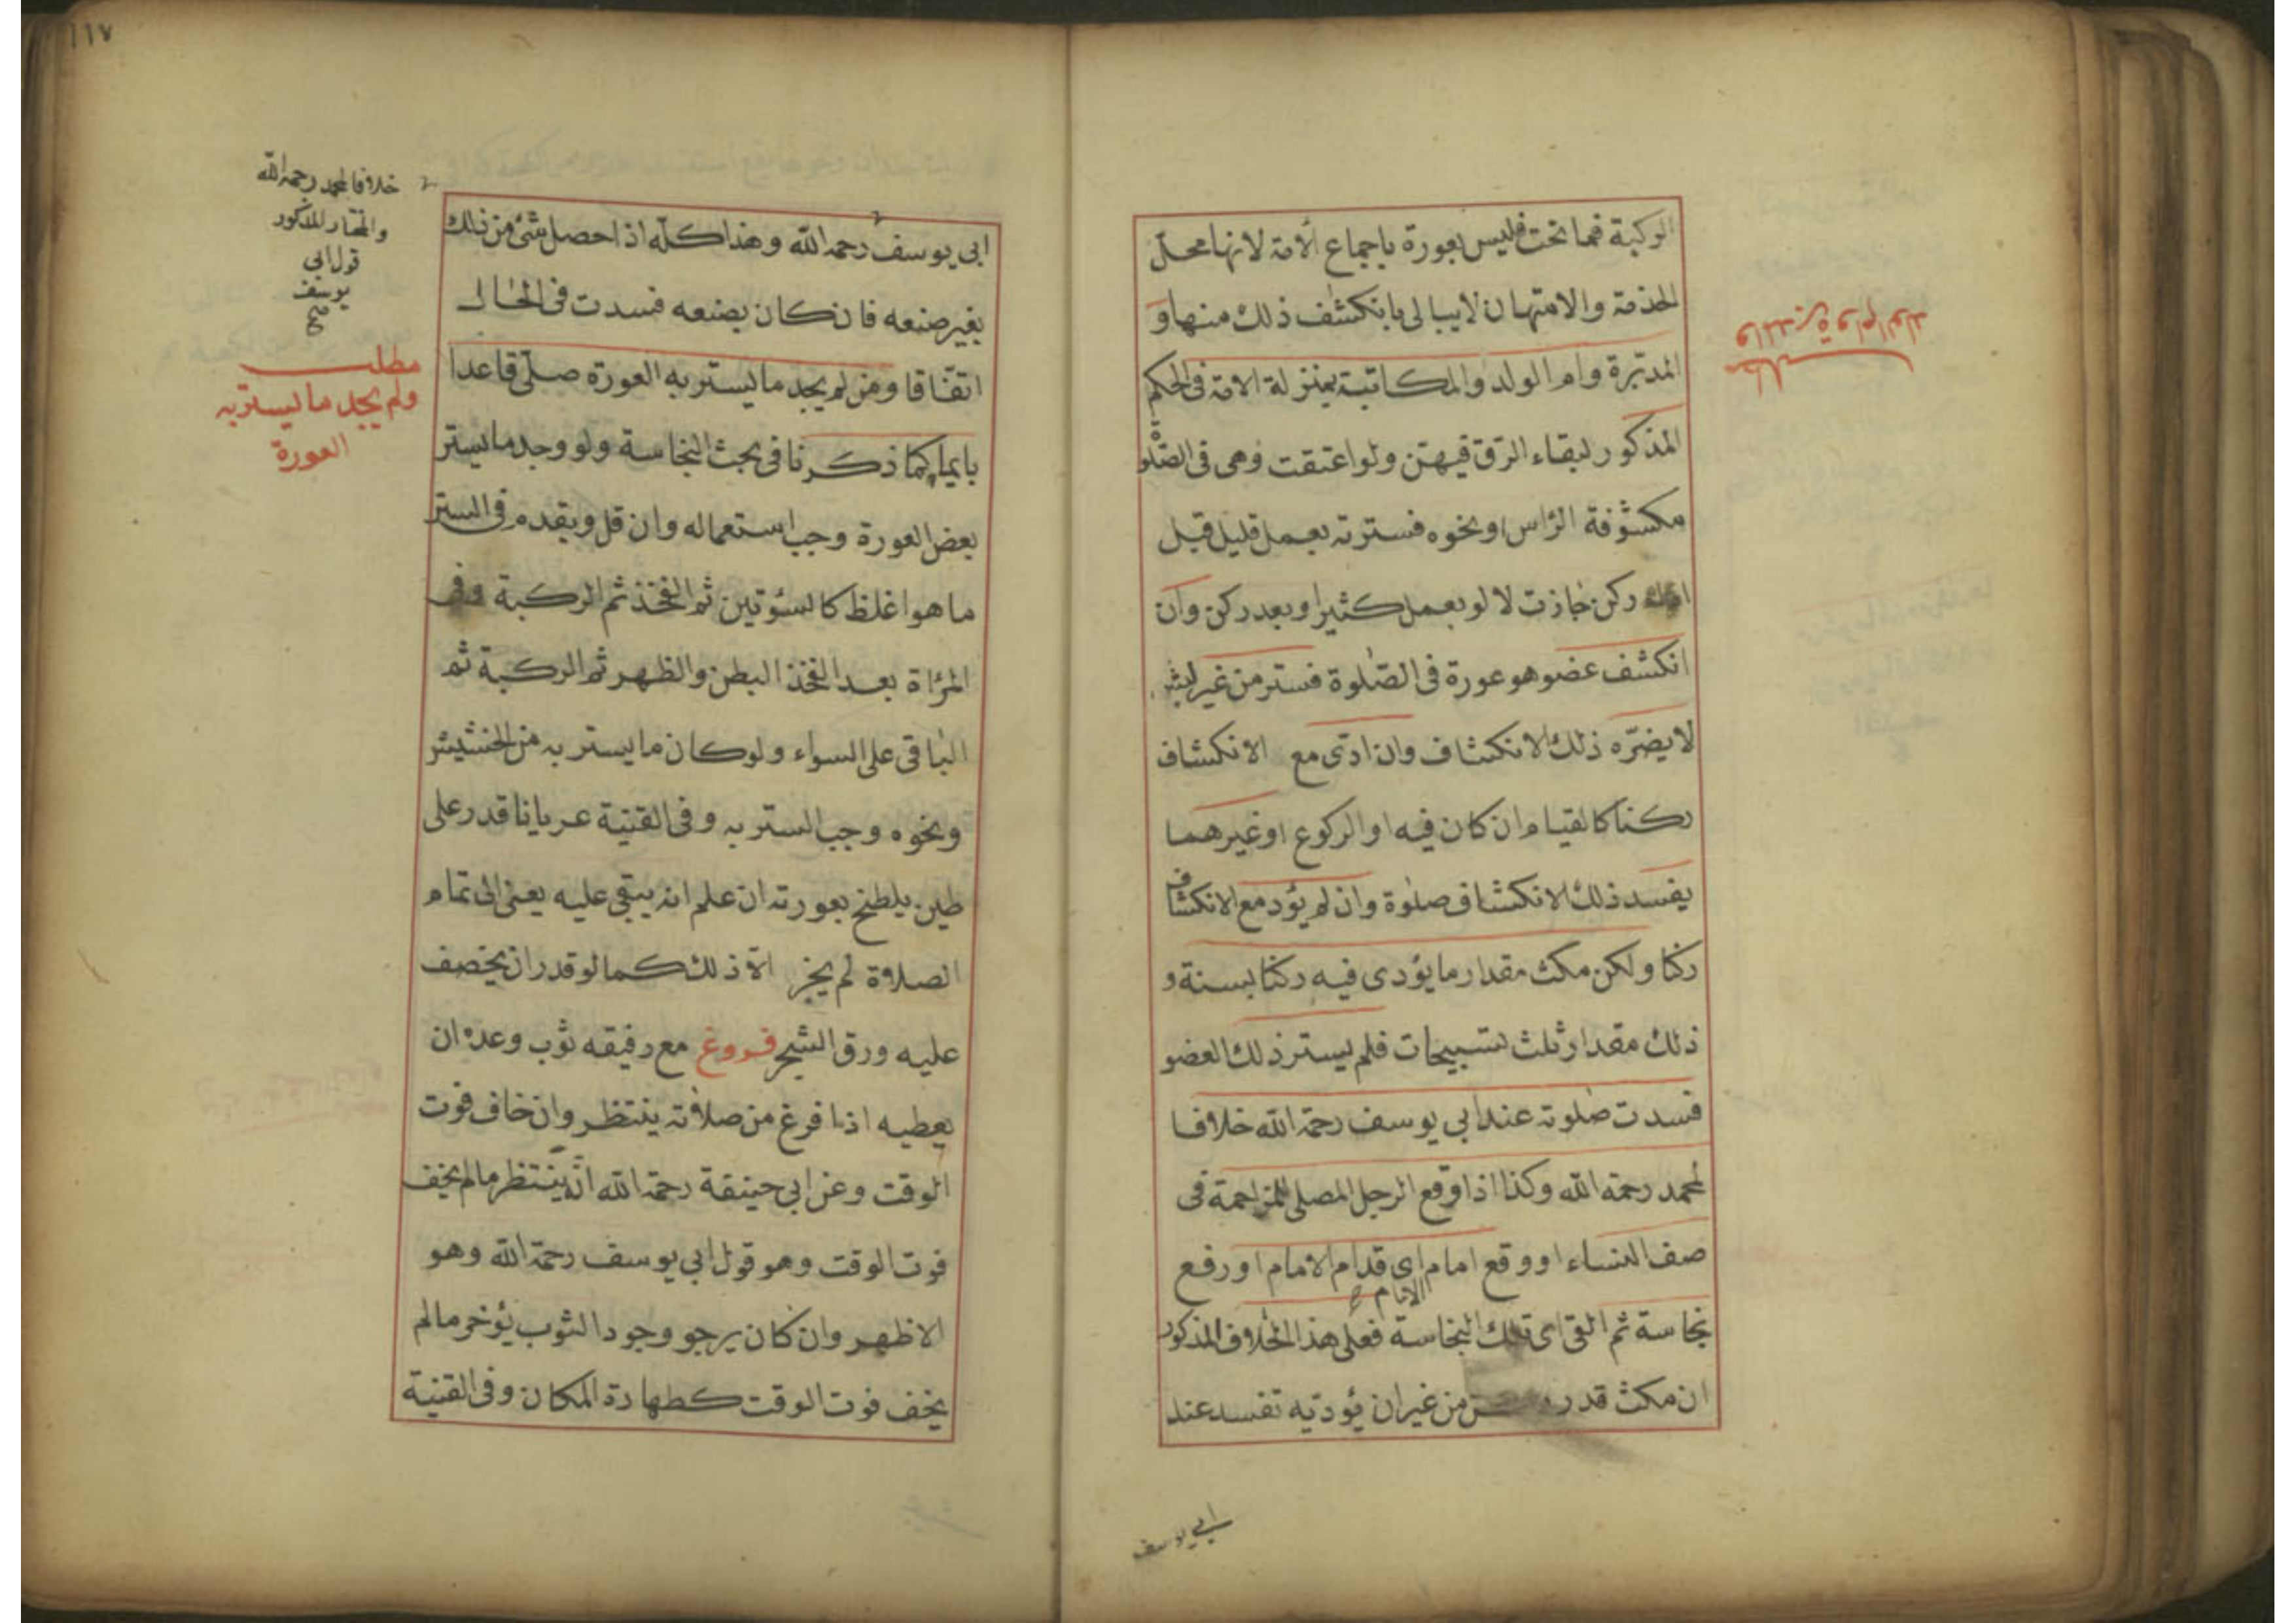 الركبة فما تحت فليس بعورة باجماع الأمة لانها محلّ
الخذمة والامتهان لايبالى بانكشف ذلك منها و
المدبّرة وام الولد والمكاتبة بمنزلة الامة فى الحكم
المذكور لبقاء الرّق فيهنّ ولو اعتقت وهى فى الصّلو
مكشوفة الرّاس او نخوه فسترته بعمل قليل قبل
ركن جازت لا لو بعمل كثيرا وبعد ركن وان
انكشف عضو هو عورة فى الصّلوة فستر من غير لبث
لا يضرّه ذلك الانكشاف وان ادّى مع الانكشاف
ركنا كالقيام ان كان فيه او الركوع او غيرهما
يفسد ذلك الانكشاف صلوة وان لم يؤد مع الانكشاف
ركنا ولكن مكث مقدار ما يؤدى فيه ركنا بسنة و
ذلك مقدار ثلث تسبيحات فلم يستر ذلك العضو
فسدت صلوته عند ابى يوسف رحمة الله خلافا
لمحمد رحمة الله وكذا اذا وقع الرجل المصلى للمزاحمة فى
صف النساء او وقع امام اى قدام الامام او رفع
الامام صح
نجاسة ثم القى اى تلك النجاسة فعلى هذا الخلاف المذكور
ان مكث قدر من غير ان يؤديه تفسد عند
ابى يوسف
والمدبرة وام الولد
مطلب
١١٧
ابى يوسف رحمه الله وهذا كلّه اذا حصل شئ من ذلك
بغير صنعه فان كان بصنعه فسدت فى الحال
اتفّاقا ومن لم يجد ما يستر به العورة صلّى قاعدا
بايماء كما ذكرنا فى بحث النجاسة ولو وجد ما يستر
بعض العورة وجب استعماله وان قل ويقدم فى الستر
ما هو اغلظ كالسؤتين ثم الفخذ ثم الركبة وفى
المرأة بعد الفخذ البطن والظهر ثم الركبة ثم
الباقى على السواء ولو كان ما يستر به من الحشيش
ونحوه وجب الستر به وفى القنية عريانا قدر على
طين يلطخ بعورته ان علم انه يبقى عليه يعنى الى تمام
الصلاة لم يجز الاّ ذلك كما لو قدر ان يخصف
عليه ورق الشجر فروغ مع رفيقه ثوب وعده ان
يعطيه اذا فرغ من صلاته ينتظر وان خاف فوت
الوقت وعن ابى حنيفة رحمة الله انّه ينتظر ما لم يخف
فوت الوقت وهو قول ابى يوسف رحمة الله وهو
الاظهر وان كان يرجو وجود الثوب يؤخر مالم
يخف فوت الوقت كطهارة المكان وفى القنية
خلافا لمحمد رحمه الله
والمختار المذكور
قول ابى
يوسف
صح
مطلب
ولم يجد ما يستر به
العورة